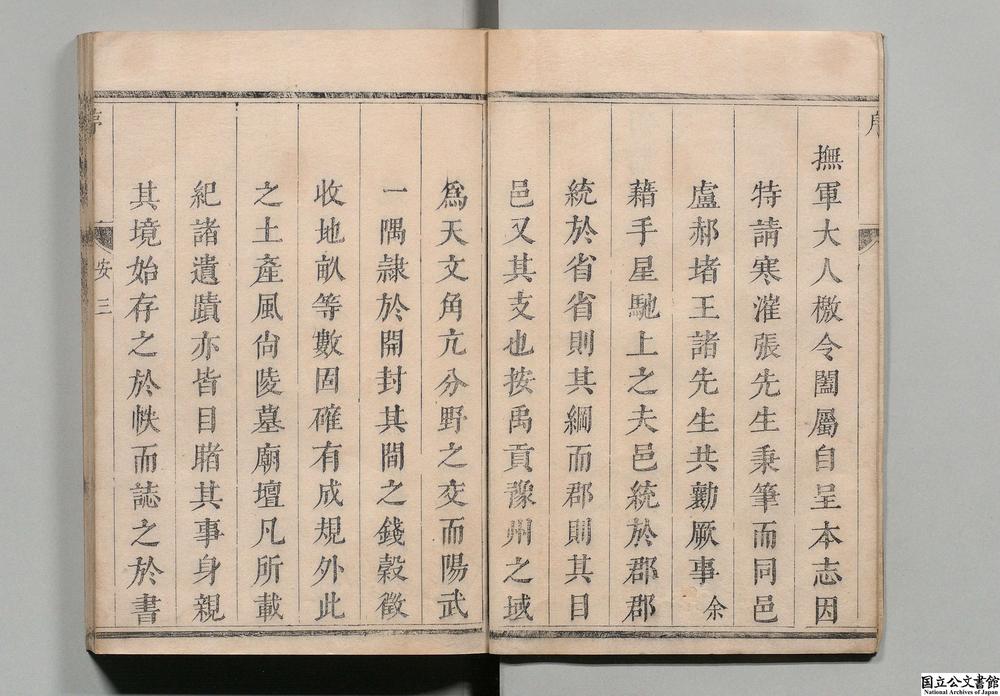 撫軍大人檄令闔屬自呈本志因
特請寒灌張先生秉筆而同邑
盧郝堵王諸先生共勷厥事余
藉手星馳上之夫邑統於郡郡
統於省省則其綱而郡則其目
邑又其支也按禹貢豫州之域
爲天文角亢分野之交而陽武
一隅隷於開封其間之錢穀徵
收地畝等數固確有成規外此
之土產風尙陵墓廟壇凡所載
紀諸遺蹟亦皆目睹其事身親
其境始存之於帙而誌之於書
安 三
国立公文書館
National Archives of Japan